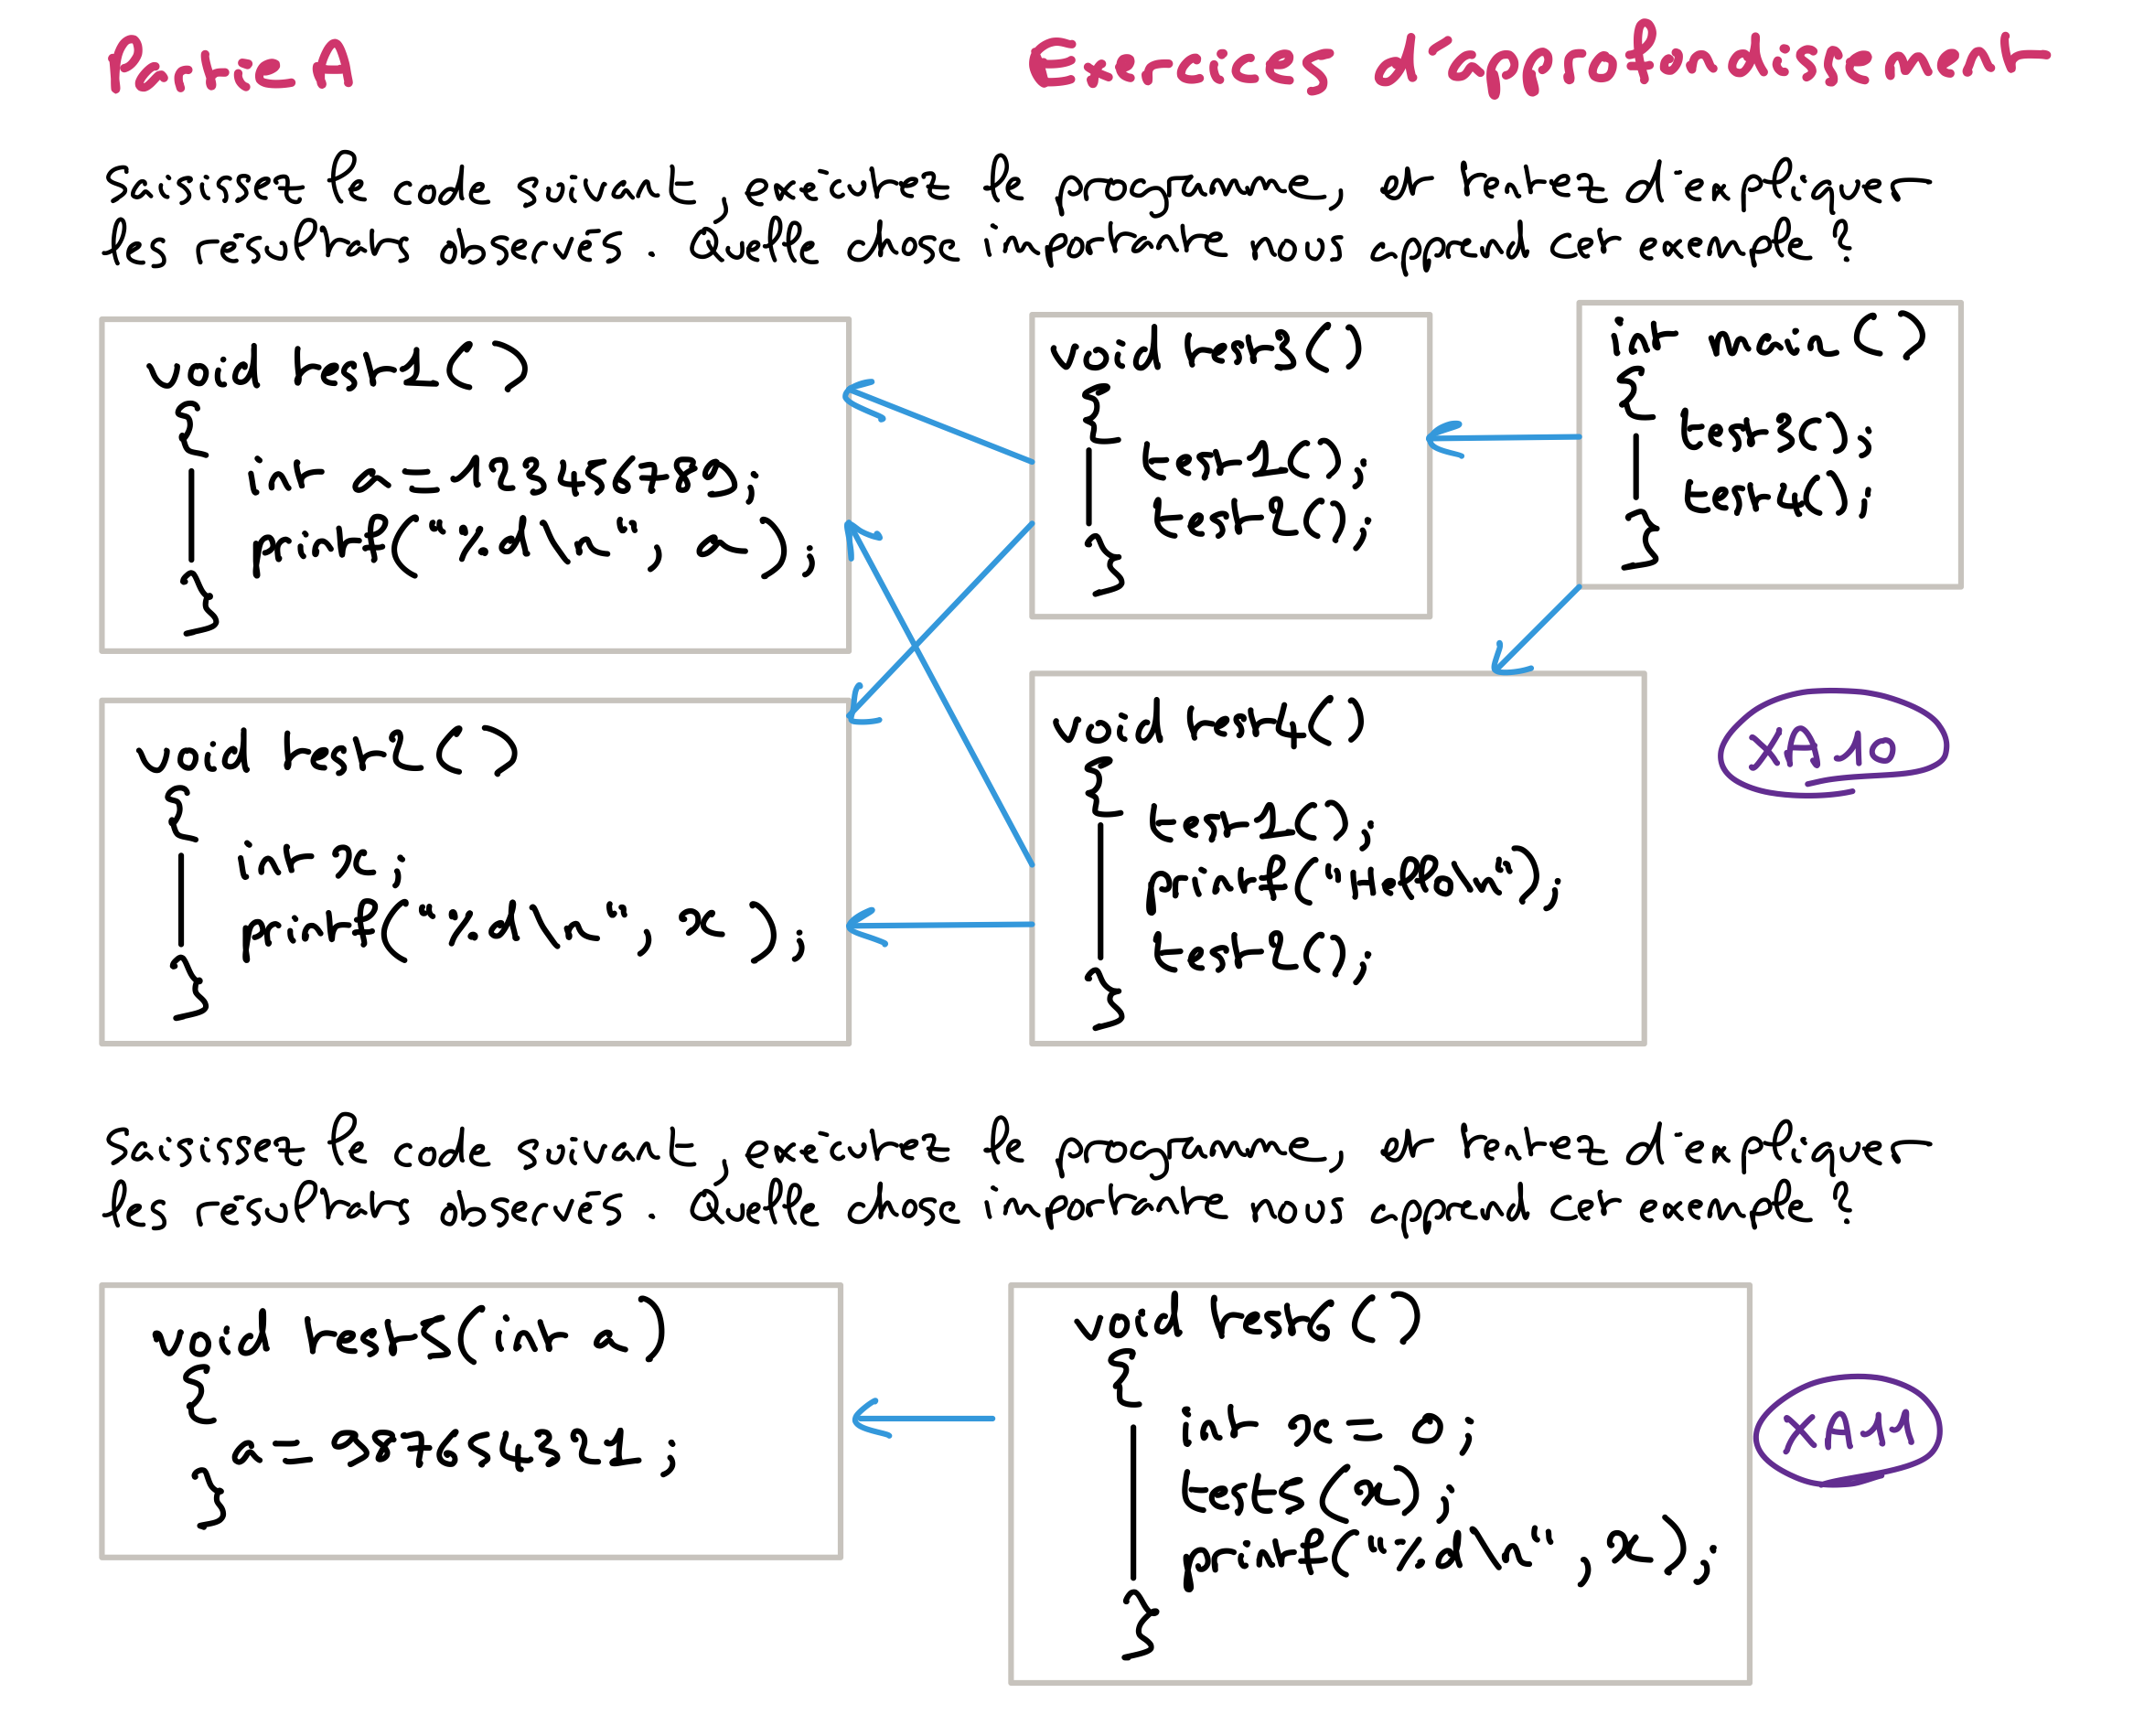 Partie A
Exercices d'approfondissement
Saisissez le code suivant, exécutez le programme, et tentez d'expliquer
les résultats observés. Quelle chose importante nous apprend cet exemple ?
void test1()
{
int a = 123456789;
printf("%d\n", a);
}
void test2()
{
int x;
printf("%d\n", x);
}
void test3()
{
test1();
test2();
}
int main()
{
test3();
test4();
}
void test4()
{
test1();
printf("Hello\n");
test2();
}
XA10
Saisissez le code suivant, exécutez le programme, et tentez d'expliquer
les résultats observés. Quelle chose importante nous apprend cet exemple ?
void test5(int a)
{
a = 987654321;
}
void test6()
{
int x = 0;
test5(x);
printf("%d\n", x);
}
XA11